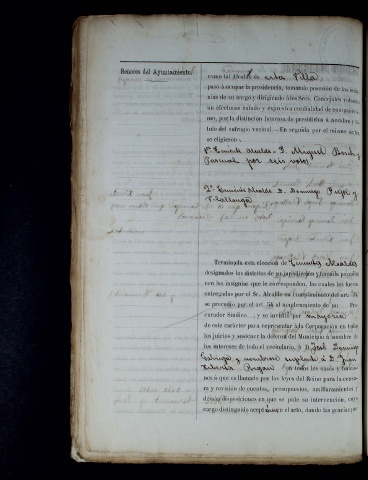 Señores del Ayuntamiento.
como tal Alcalde de esta Villa
pasó á ocupar la presidencia, tomando posesión de las insig-
nias de su cargo y dirigiendo á los Sres. Concejales
un afectuoso saludo y expresiva cordialidad de compañeris-
mo, por la distinción honrosa de presidirlos á nombre y tí-
tulo del sufragio vecinal.—En seguida por el mismo
se eligieron
1er Teniente Alcalde D. Miguel Bosch y
Pascual por seis votos
2º Teniente Alcalde D. Domingo Puig y
Vilallonga
Terminada esta elección de Tenientes Alcaldes
designados los distritos de su jurisdicción y tomada posesión
con las insignias que le corresponden, las cuales les fueron
entregadas por el Sr. Alcalde en cumplimiento del art.
se procedió por el art. 56 al nombramiento de un Pro-
curador Síndico, y se invistió por mayoría
de este carácter para representar á la Corporación en todos
los juicios y sostener la defensa del Municipio á nombre de
los intereses de todo el vecindario, á D. José Domingo
y nombran suplente á D. Juan
en todos los casos y funcio-
nes á que es llamado por las leyes del Reino para la censu-
ra y revisión de cuentas, presupuestos, amillaramientos y
demás disposiciones en que se pide su intervención, cuyo
cargo distinguido aceptaron en el acto, dando las gracias por